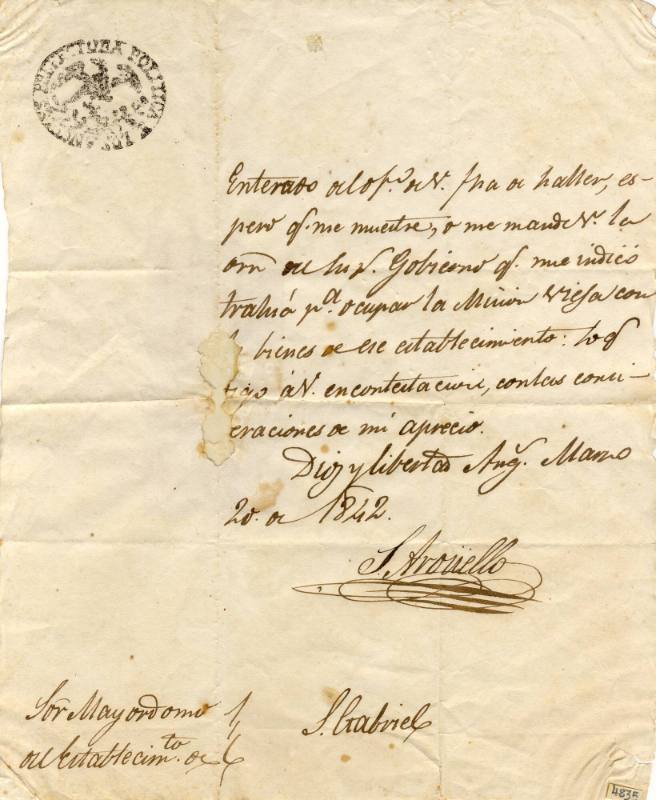 PREFECTURA POLITICA DE LOS ANGELES
Enterado del of.º de V. fha de haller, es-
pero q.e me muestre, o me mande V. la
orn del sup.r Gobierno q.e me indicó
trahiá p.a ocupar la Mision Viefa con
bienes de ese establecimiento: lo q.e
digo á V. en contestacion, con las consi-
eraciones de mi aprecio.
Dios y libertad Ang.s Marzo
20. de 1842.
S. Arguello
Sor Mayordomo
del Establecim.to de
S. Gabriel
4835